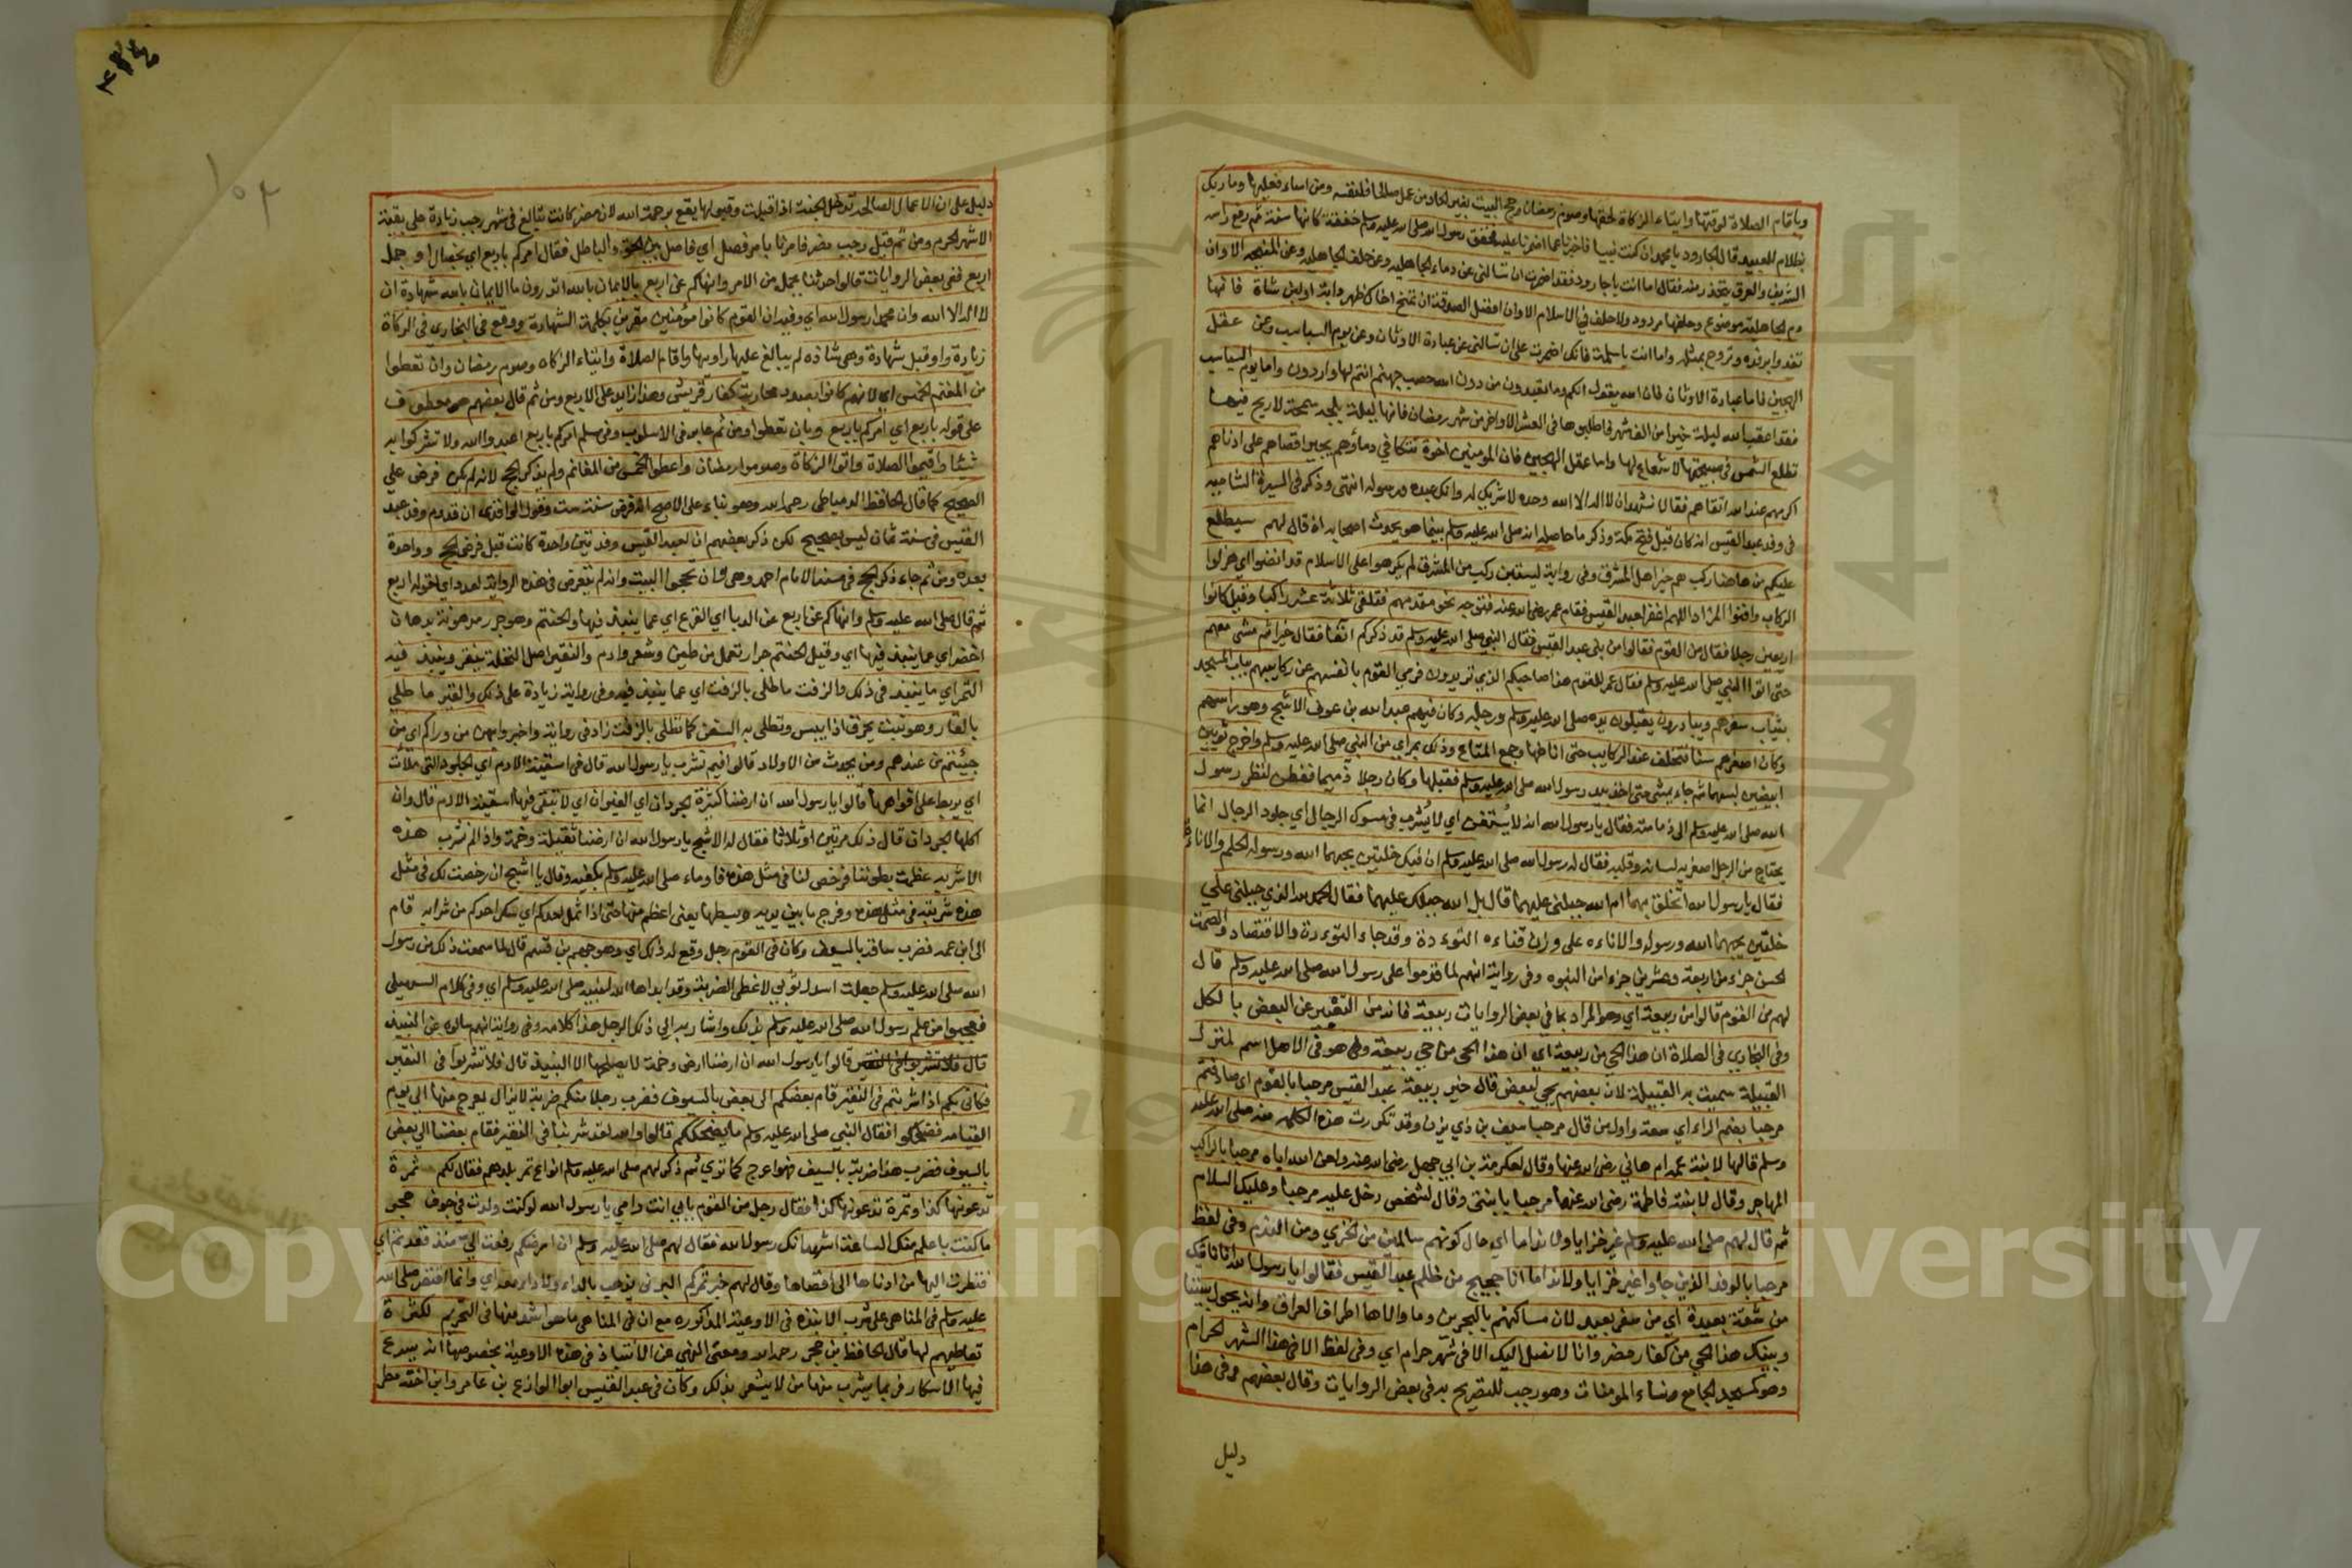 وباقام الصلاة لوقتها وايتاء الزكاة لحقها وصوم رمضان وحج البيت بغير الحاد من عمل صالحا فلنفسه ومن اساء فعليها وما ربك
بظلام للعبيد قال الجارود يا محمد ان كنت نبيا فاخبرنا عما اضمرنا عليه فخفق رسول الله صلى الله عليه وسلم خفقة كانها سنة ثم رفع راسه
الشريف والعرق يتحذر منه فقال اما انت يا جارود فقد اضمرت ان تسالني عن دماء الجاهلية وعن حلف الجاهلية وعن المنيحة الا وان
دم الجاهلية موضوع وحلفها مردود ولا حلف في الاسلام الا وان افضل الصدقة ان تمنح اخاك ظهر دابة او لبن شاة فانها
تغدوا برفده وتروح بمثله واما انت يا سلمة فانك اضمرت على ان تسالني عن عبادة الاوثان وعن يوم السباسب وعن عقل
الهجين فاما عبادة الاوثان فان الله يقول انكم وما تعبدون من دون الله حصب جهنم انتم لها واردون واما يوم السباسب
فقد اعقب الله ليلة خيرا من الف شهر فاطلبوها في العشر الاواخر من شهر رمضان فانها ليلة بلجه سمحة لا ريح فيها
تطلع الشمس في صبيحتها لا شعاع لها واما عقل الهجين فان المومنين اخوة تتكافي دماؤهم يجير اقصاهم على ادناهم
اكرمهم عند الله اتقاهم فقالا نشهد ان لا اله الا الله وحده لا شريك له وانك عبده ورسوله انتهى وذكر في السيرة الشاميه
في وفد عبد القيس انه كان قبل فتح مكة وذكر ما حاصله انه صلى الله عليه وسلم بينما هو يحدث اصحابه اذ قال لهم سيطلع
عليكم من هاهنا ركب هم خير اهل المشرق وفي رواية ليستين ركب من المشرق لم يكرهوا على الاسلام قد انضوا اي هزلوا
الركاب وافنوا المزاد اللهم اغفر لعبد القيس فقام عمر رضي الله عنه فتوجه نحو مقدمهم فتلقى ثلاثة عشر راكبا وقيل كانوا
اربعين رجلا فقال من القوم فقالوا من بني عبد القيس فقال النبي صلى الله عليه وسلم قد ذكركم انفا فقال خيرا ثم مشى معهم
حتى اتوا النبي صلى الله عليه وسلم فقال عمر للقوم هذا صاحبكم الذي تريدون فرمى القوم بانفسهم عن ركايبهم بباب المسجد
بثياب سفرهم وبيادرون يقبلون يده صلى الله عليه وسلم ورجله وكان فيهم عبد الله بن عوف الاشج وهو راسهم
وكان اصغرهم سنا فتخلف عند الركايب حتى اناخها وجمع المتاع وذلك بمراي من النبي صلى الله عليه وسلم واخرج ثوبين
ابيضين لبسهما ثم جاء يمشي حتى اخذ بيد رسول الله صلى الله عليه وسلم فقبلها وكان رجلا ذميما ففطن لنظر رسول
الله صلى الله عليه وسلم الى ذمامته فقال يا رسول الله انه لا يستقى اي لا يشرب في مسوك الرجال اي جلود الرجال انما
يحتاج من الرجل اصغريه لسانه وقلبه فقال له رسول الله صلى الله عليه وسلم ان فيك خلتين يحبهما الله ورسوله الحلم والاناءه
فقال يا رسول الله اتخلق بهما ام الله جبلني عليهما قال بل الله جبلك عليهما فقال الحمد لله الذي جبلني علي
خلتين يحبهما الله ورسوله والاناءه على وزن قناءه التوءدة وقد جاء التوءدة والاقتصاد والصمت
لحسن جزء من اربعة وعشرين جزءا من النبوه وفي رواية انهم لما قدموا على رسول الله صلى الله عليه وسلم قال
لهم من القوم قالوا من ربيعة اي وهو المراد بما في بعض الروايات ربيعة فانه من التعبير عن البعض بالكل
وفي البخاري في الصلاة ان هذا الحي من ربيعة اي ان هذا الحي من حي ربيعة وهو في الاصل اسم لمنزل
القبيلة سميت به القبيلة لان بعضهم يحي لبعض قال خير ربيعة عبد القيس مرحبا بالقوم اي صادفتم
مرحبا بضم الراء اي سعة واول من قال مرحبا سيف بن ذي يزن وقد تكررت هذه الكلمه منه صلى الله عليه
وسلم قالها لابنة عمه ام هاني رضي الله عنها وقال لعكرمة بن ابي جهل رضي الله عنه ولعن الله اباه مرحبا بالراكب
المهاجر وقال لابنته فاطمة رضي الله عنها مرحبا يا بنتي وقال لشخص دخل عليه مرحبا وعليك السلام
ثم قال لهم صلى الله عليه وسلم غير خزايا ولا نداما اي حال كونهم سالمين من الخزي ومن الندم وفي لفظ
مرحبا بالوفد الذين جاوا غير خزايا ولا نداما انا حجيج من ظلم عبد القيس فقالوا يا رسول الله انا ناتيك
من شقة بعيدة اي من سفر بعيد لان مساكنهم بالبحرين وما والاها اطراف العراق وانه يحول بيننا
وبينك هذا الحي من كفار مضر وانا لا نصل اليك الا في شهر حرام اي وفي لفظ الا في هذا الشهر الحرام
وهو كمسجد الجامع ونساء المومنات وهو رجب للتصريح به في بعض الروايات وقال بعضهم وفي هذا
دليل
دليل على ان الاعمال الصالحة تدخل الجنة اذا قبلت وقبولها يقع برحمة الله لان مضر كانت تبالغ في شهر رجب زيادة على بقية
الاشهر الحرم ومن ثم قيل رجب مضر فامرنا بامر فصل اي فاصل بين الحق والباطل فقال امركم باربع اي بخصال او جمل
اربع ففي بعض الروايات قالوا حدثنا بجمل من الامر وانهاكم عن اربع بالايمان بالله اتدرون ما الايمان بالله شهادة ان
لا اله الا الله وان محمدا رسول الله اي وفيه ان القوم كانوا مؤمنين مقرين بكلمة الشهادة ووقع في البخاري في الزكاة
زيادة واو قبل شهادة وهي شاذه لم يبالغ عليها راويها واقام الصلاة وايتاء الزكاه وصوم رمضان وان تعطوا
من المغنم الخمس اي لانهم كانوا بصدد محاربة كفار قريش وهذا زايد على الاربع ومن ثم قال بعضهم هو معطوف
على قوله باربع اي امركم باربع وبان تعطوا ومن ثم غاير في الاسلوب وفي مسلم امركم باربع اعبدوا الله ولا تشركوا به
شيئا واقيموا الصلاة واتوا الزكاة وصوموا رمضان واعطوا الخمس من المغانم ولم يذكر الحج لانه لم يكن فرض علي
الصحيح كما قال الحافظ الدمياطي رحمه الله وهو بناء على الاصح انه فرض سنة ست وقول الواقدي ان قدوم وفد عبد
القيس في سنة ثمان ليس بصحيح لكن ذكر بعضهم ان لعبد القيس وفدتين واحدة كانت قبل فرض الحج وواحدة
بعده ومن ثم جاء ذكر الحج في مسند الامام احمد وهي وان تحجوا البيت وانه لم يتعرض في هذه الرواية لعدد اي لقوله اربع
ثم قال صلى الله عليه وسلم وانهاكم عن اربع عن الدبا اي القرع اي عما ينبذ فيها والحنتم وهو جرر مدهونة بدهان
اخضر اي عما ينبذ فيها اي وقيل الحنتم جرار تعمل من طين وشعر وادم والنقير اصل النخلة ينقر وينبذ فيه
التمر اي ما ينبذ في ذلك والزفت ما طلي بالزفت اي عما ينبذ فيه وفي رواية زيادة على ذلك والقير ما طلي
بالقار وهو نبت يحرق اذا يبس وتطلى به السفن كما تطلى بالزفت زاد في رواية واخبروا بهن من وراكم اي من
جيئتم من عندهم ومن يحدث من الاولاد قالوا فيم نشرب يا رسول الله قال في اسقية الادم اي الجلود التي تلاث
اي يربط على افواهها قالوا يا رسول الله ان ارضنا كثيرة الجردان اي الفيران اي لا تبقى فيها اسقية الادم قال وان
اكلها الجردان قال ذلك مرتين او ثلاثا فقال له الاشج يا رسول الله ان ارضنا ثقيلة وخمة واذا لم نشرب هذه
الاشربه عظمت بطوننا فرخص لنا في مثل هذه فاوماء صلى الله عليه وسلم بكفيه وقال يا اشج ان رخصت لك في مثل
هذه شربته في مثل هذه وفرج ما بين يديه وبسطها يعني اعظم منها حتى اذا ثمل احدكم اي سكر احدكم من شرابه قام
الى ابن عمه فضرب ساقه بالسيف وكان في القوم رجل وقع له ذلك اي وهو جهم بن قثم قال لما سمعت ذلك من رسول
الله صلى الله عليه وسلم جعلت اسدل ثوبي لاغطي الضربة وقد ابداها الله لنبيه صلى الله عليه وسلم اي وفي كلام السهيلي
فعجبوا من علم رسول الله صلى الله عليه وسلم بذلك واشاربه الى ذلك الرجل هذا كلامه وفي رواية انهم سالوه عن النبيذ
قال فلا تشربوا في النقير قالوا يا رسول الله ان ارضنا ارض وخمة لا يصلحها الا النبيذ قال فلا تشربوا في النقير
فكاني بكم اذا شربتم في النقير قام بعضكم الى بعض بالسيوف فضرب رجلا منكم ضربة لا يزال يعرج منها الى يوم
القيامه فضحكوا فقال النبي صلى الله عليه وسلم ما يضحككم قالوا والله لقد شربنا في النقير فقام بعضنا الى بعض
بالسيوف فضرب هذا ضربة بالسيف فهو اعرج كما ترى ثم ذكر لهم صلى الله عليه وسلم انواع تمر بلدهم فقال لكم تمرة
تدعونها كذا وتمرة تدعونها كذا فقال رجل من القوم بابي انت وامي يا رسول الله لو كنت ولدت في جوف هجر
ما كنت باعلم منك الساعة اشهد انك رسول الله فقال لهم صلى الله عليه وسلم ان ارضكم رفعت الي منذ قعدتم اي
فنظرت اليها من ادناها الى اقصاها وقال لهم خير تمركم البرني يذهب بالداء ولا داء معه اي وانما اقتصر صلى الله
عليه وسلم في المناهي على شرب الانبذه في الاوعية المذكوره مع ان في المناهي ما هو اشد منها في التحريم لكثرة
تعاطيهم لها قال الحافظ بن حجر رحمه الله ومعنى النهي عن الانتباذ في هذه الاوعية بخصوصها انه يسرع
فيها الاسكار فربما يشرب منها من لا يشعر بذلك وكان في عبد القيس ابوا الوازع بن عامر وابن اخته مطر
١٥٣
Copyright © King Saud University